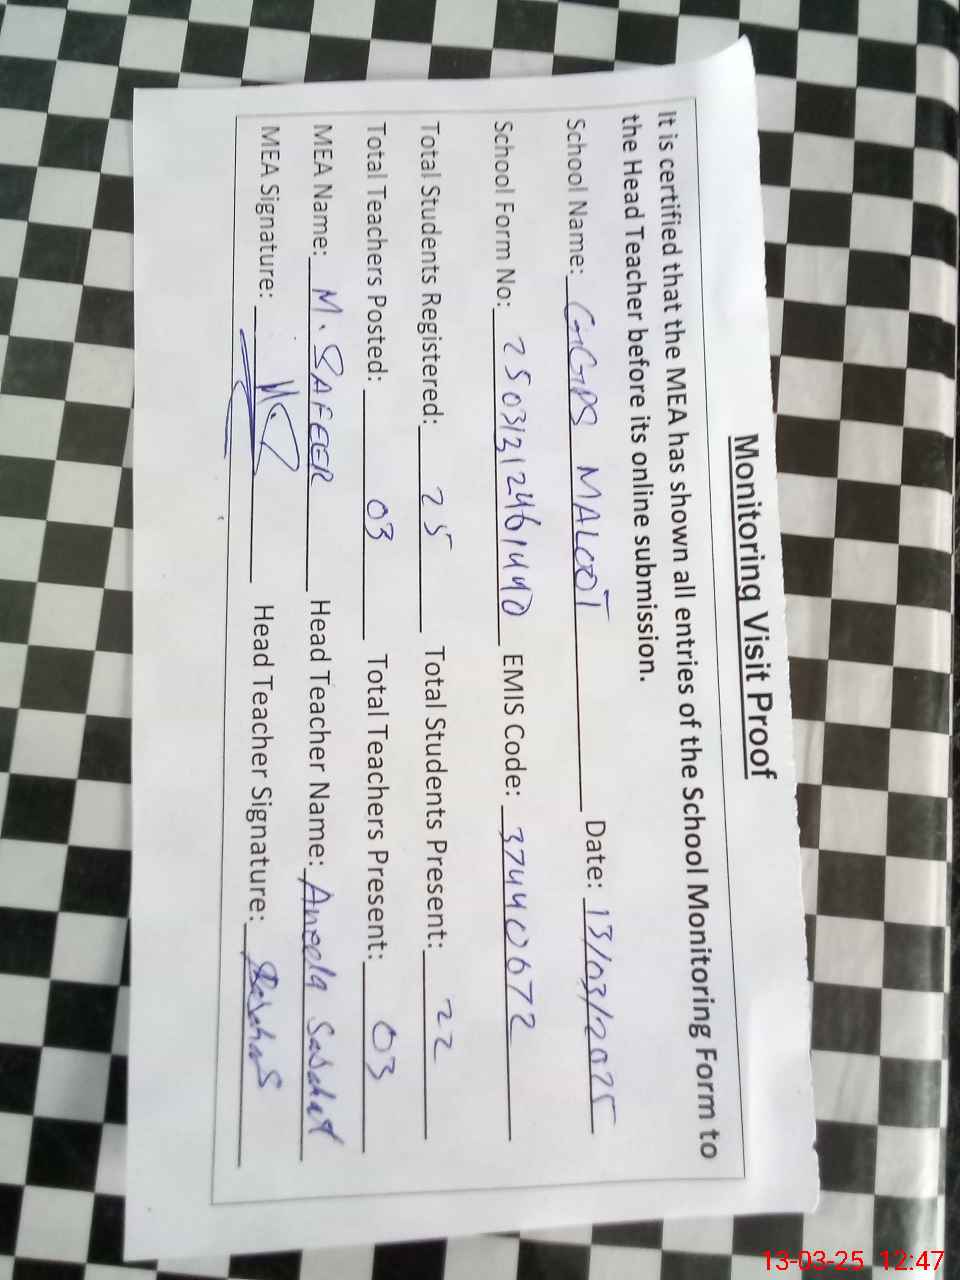 Monitoring Visit Proof
It is certified that the MEA has shown all entries of the School Monitoring Form to
the Head Teacher before its online submission.
School Name: GGPS MALOOT Date: 13/03/2025
School Form No: 25031212461440 EMIS Code: 37440672
Total Students Registered: 25 Total Students Present: 22
Total Teachers Posted: 03 Total Teachers Present: 03
MEA Name: M. SAFEER Head Teacher Name: Aneela Sabahat
MEA Signature: Head Teacher Signature:
13-03-25 12:47